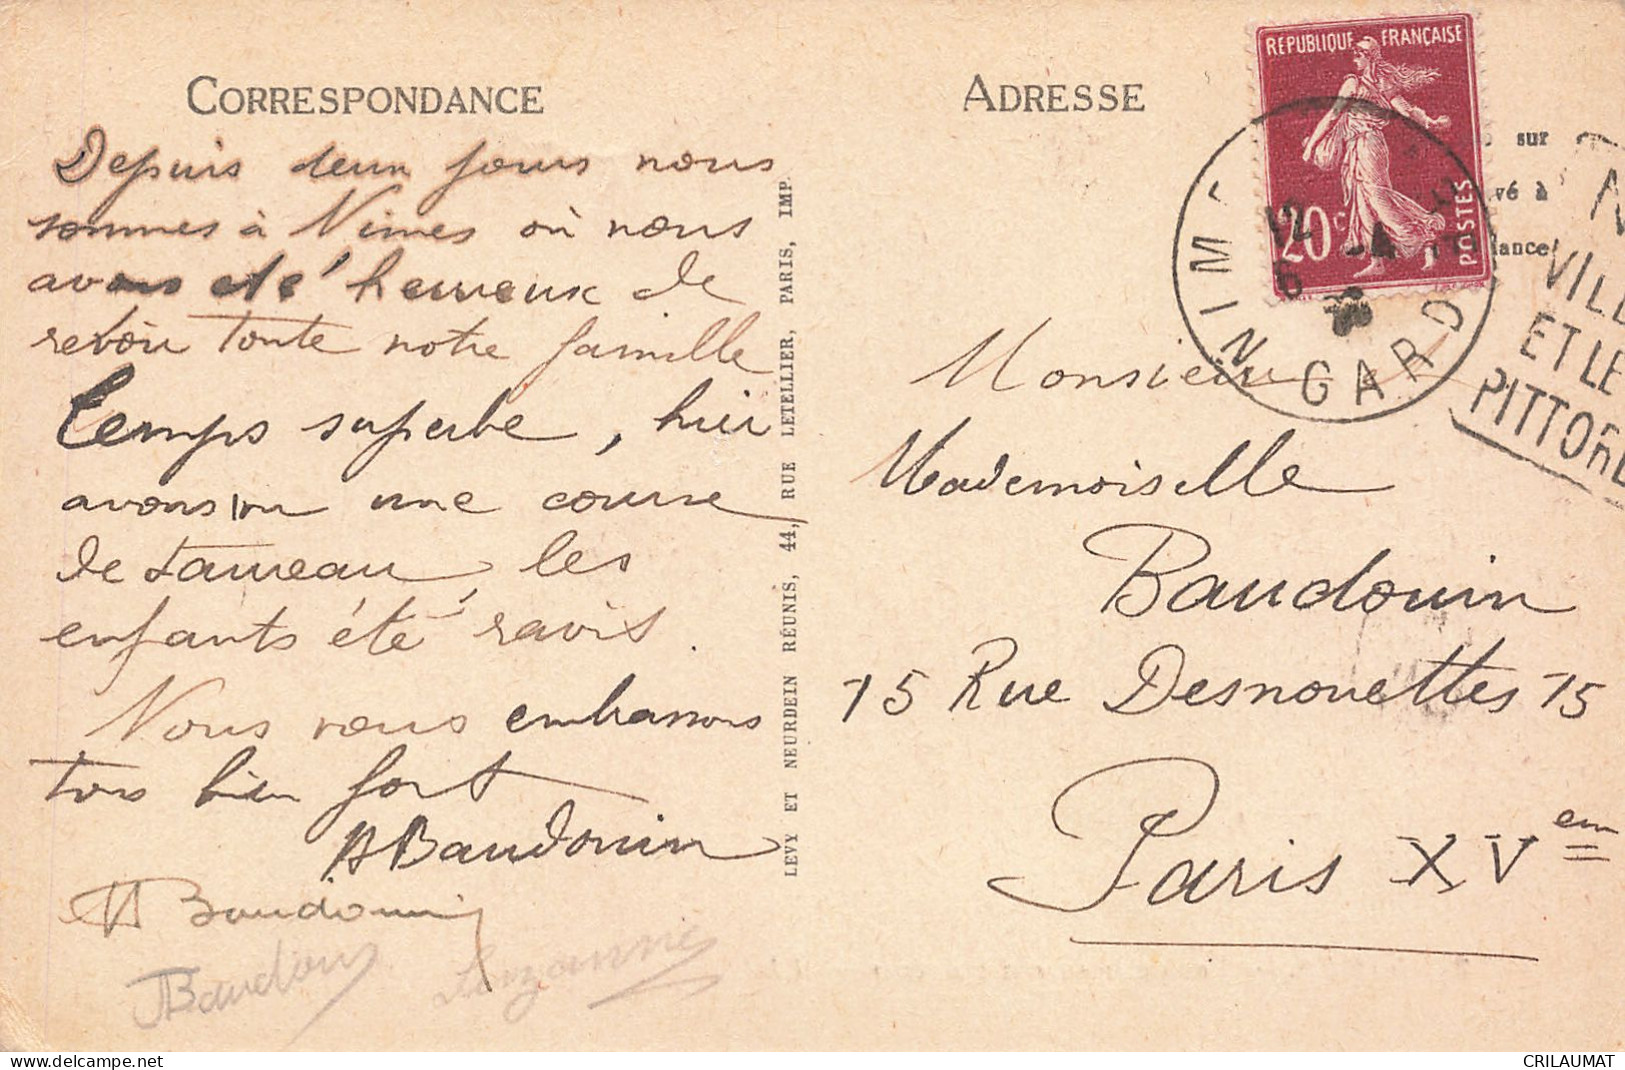 CORRESPONDANCE
Depuis deux jours nous
sommes à Nimes où nous
avons été heureux de
revoir toute notre famille
temps superbe, hier
avons vu une course
de taureau, les
enfants été ravis.
Nous vous embrassons
tous bien fort
A Baudouin
A Baudouin
Baudouin
Suzanne
LEVY ET NEURDEIN RÉUNIS, 44, RUE LETELLIER, PARIS, IMP.
ADRESSE
REPUBLIQUE FRANÇAISE
20c
POSTES
sur
vé à
dance
NIMES GARE
GARD
12
6 -4
N
VILL
ET LE
PITTORE
Monsieur
Mademoiselle
Baudouin
75 Rue Desnouettes 75
Paris XVem
delcampe.net
CRILAUMAT